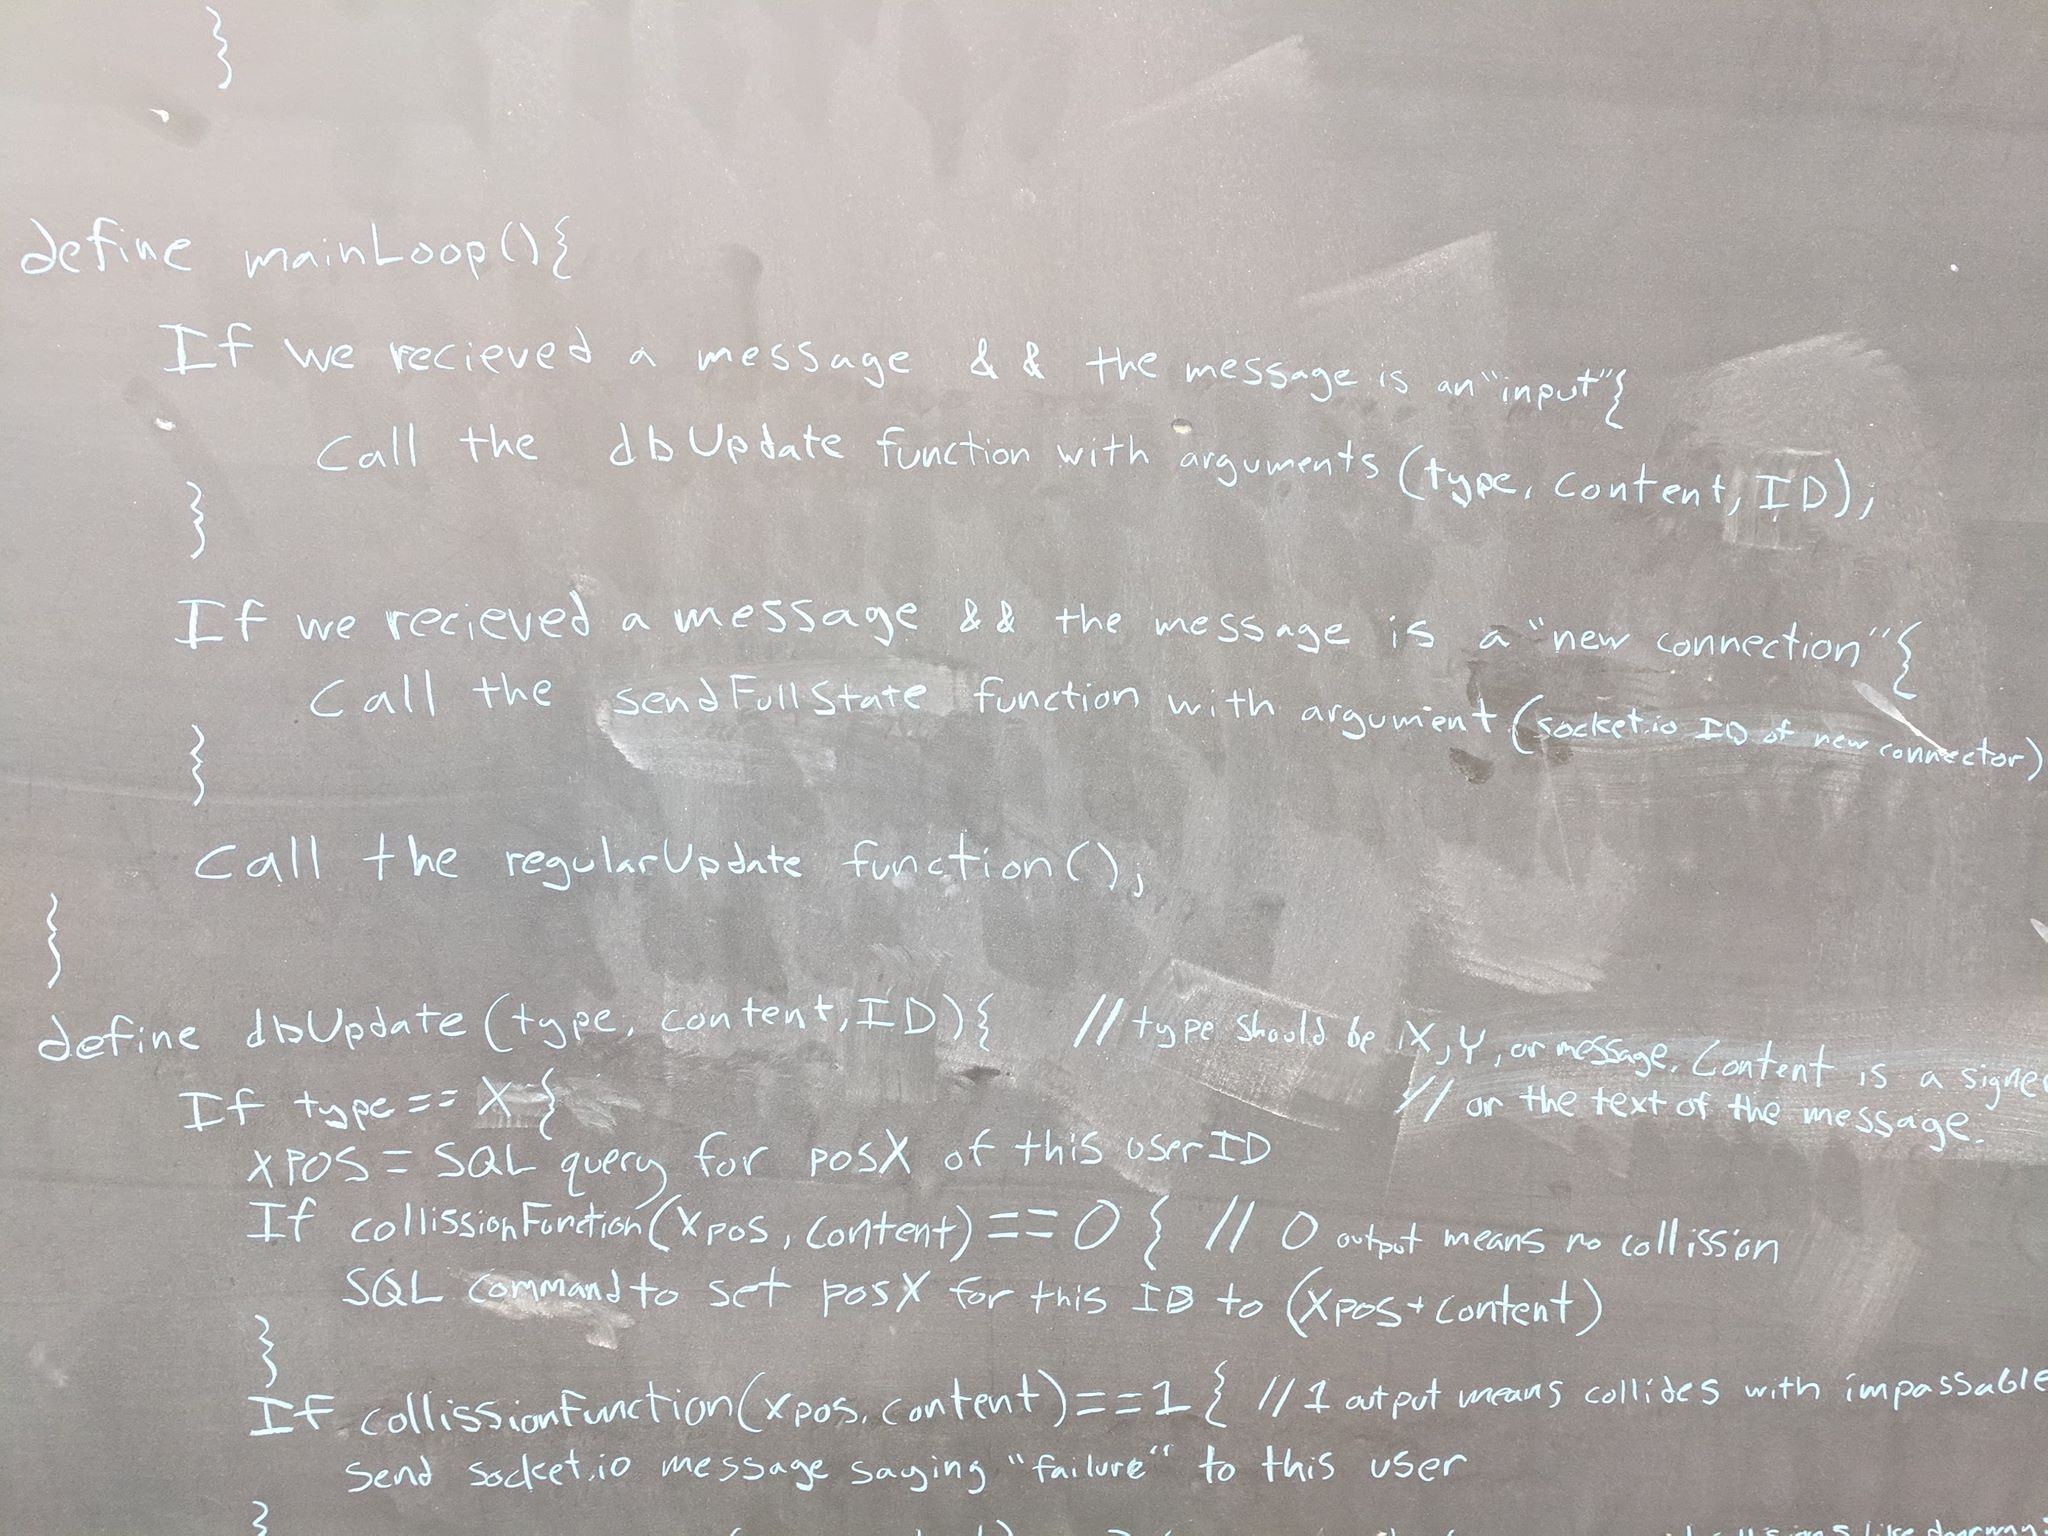 }
define mainLoop(){
If we recieved a message && the message is an "input"{
Call the dbUpdate function with arguments (type, content, ID);
}
If we recieved a message && the message is a "new connection"{
Call the sendFullState function with argument (socket.io ID of new connector)
}
Call the regularUpdate function();
}
define dbUpdate (type, content, ID){ // type should be X, Y, or message. Content is a signe
// or the text of the message.
If type == X {
xpos = SQL query for posX of this userID
If collissionFunction(xpos, content) == 0 { // 0 output means no collission
SQL command to set posX for this ID to (xpos + content)
}
If collissionFunction(xpos, content) == 1 { // 1 output means collides with impassable
Send socket.io message saying "failure" to this user
}